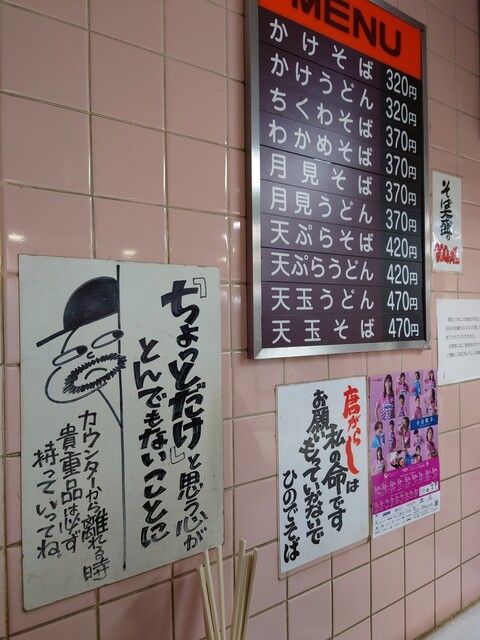 MENU
かけそば 320円
かけうどん 320円
ちくわそば 370円
わかめそば 370円
月見そば 370円
月見うどん 370円
天ぷらそば 420円
天ぷらうどん 420円
天玉うどん 470円
天玉そば 470円
そば大盛
『ちょっとだけ』と思う心が
とんでもないことに
カウンターから離れる時
貴重品は必ず
持っていってね。
唐がらしは
私の命です
お願いもっていかないで
ひのでそば